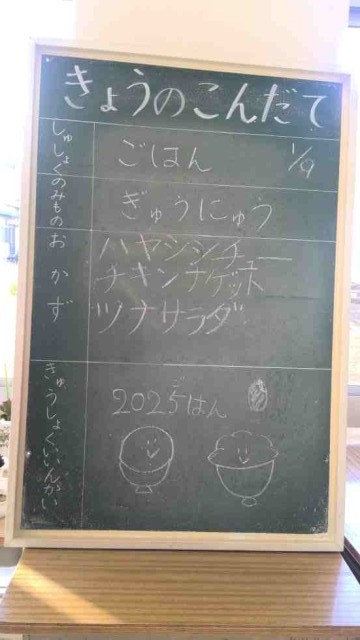 きょうのこんだて
しゅしょく
ごはん
1/9
のみもの
ぎゅうにゅう
おかず
ハヤシシチュー
チキンナゲット
ツナサラダ
きゅうしょくいいんかい
2025ごはん